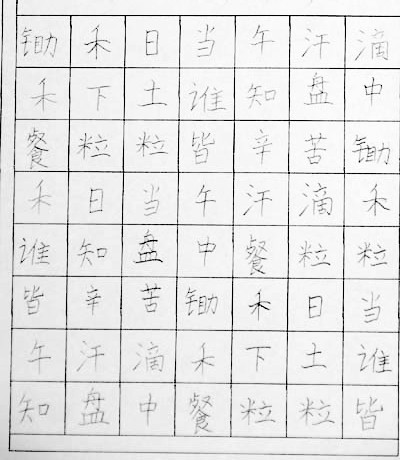 锄禾日当午汗滴
禾下土谁知盘中
餐粒粒皆辛苦锄
禾日当午汗滴禾
谁知盘中餐粒粒
皆辛苦锄禾日当
午汗滴禾下土谁
知盘中餐粒粒皆